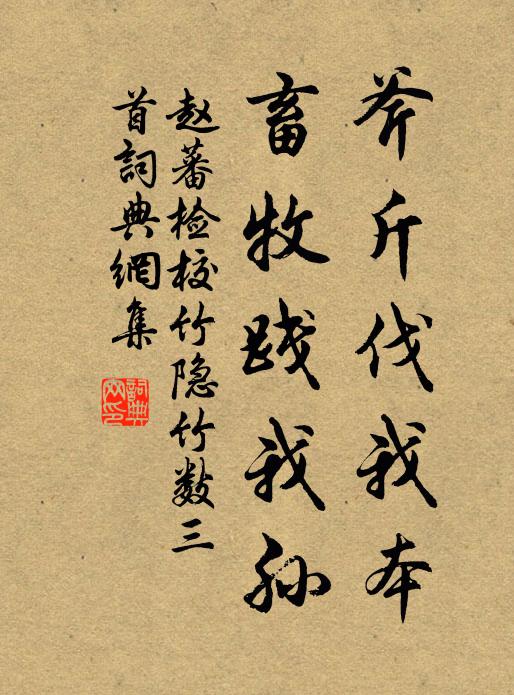 斧斤伐我本
畜牧践我孙
赵蕃检校竹隐竹数三
首词典網集
詞典網印